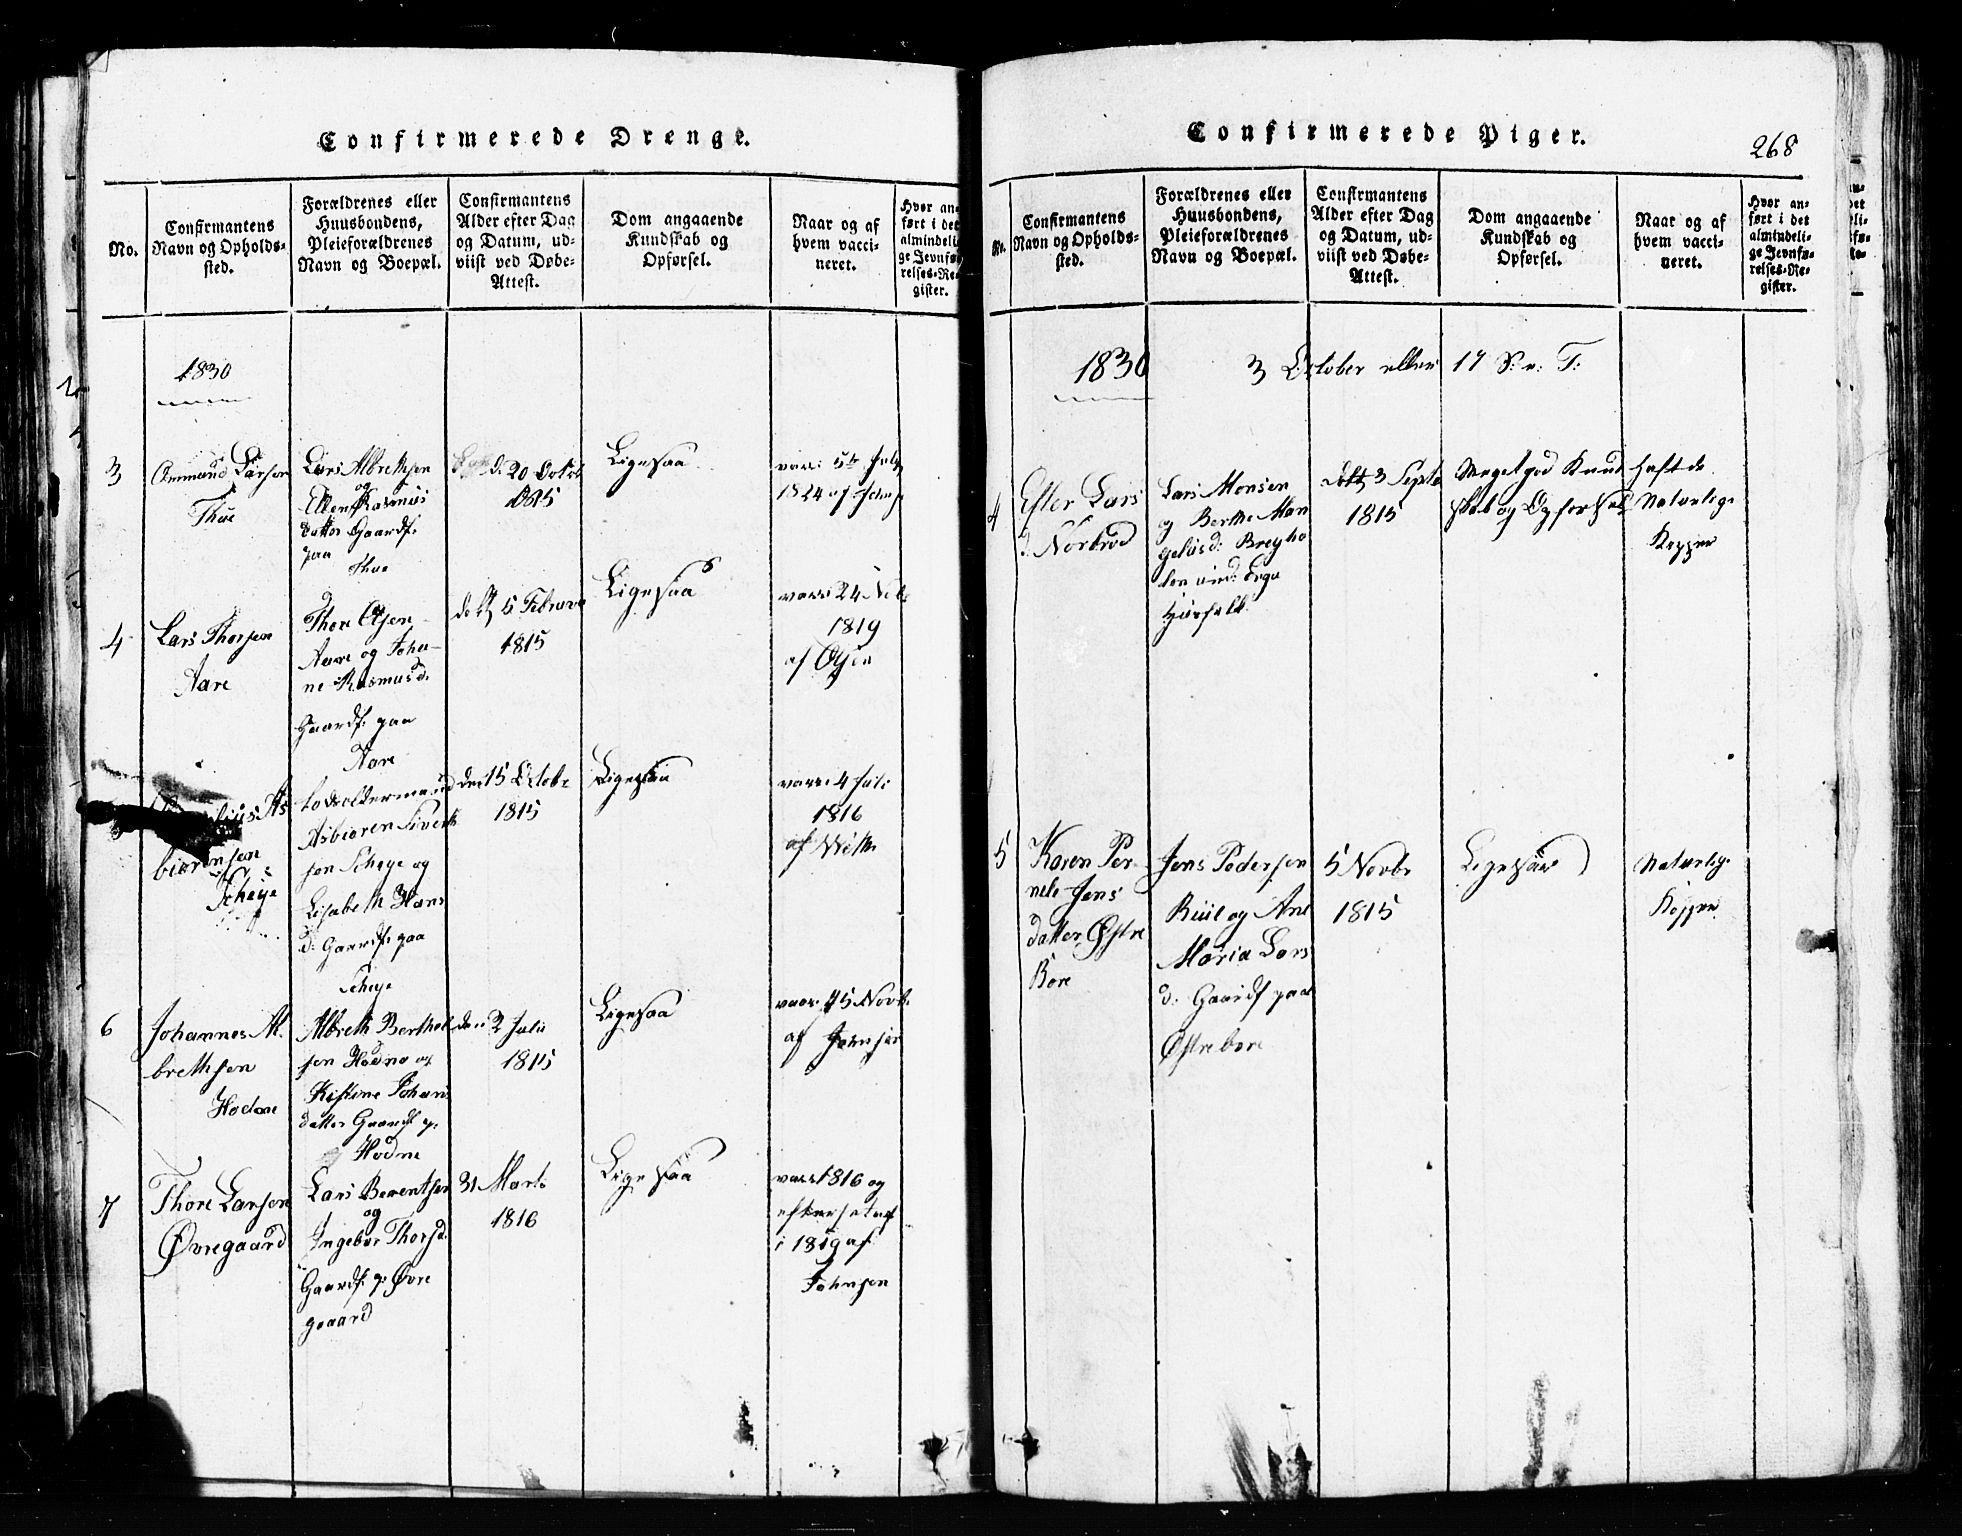 Confirmerede Drenge.
No.
Confirmantens
Navn og Opholds-
sted.
Forældrenes eller
Huusbondens,
Pleieforældrenes
Navn og Boepæl.
Confirmantens
Alder efter Dag
og Datum, ud-
viist ved Døbe-
Attest.
Dom angaaende
Kundskab og
Opførsel.
Naar og af
hvem vacci-
neret.
Hvor an-
ført i det
almindeli-
ge Jevnfø-
relses-Re-
gister.
1830
3
Ommund Larsen
Thue
Lars Albrethsen
og
Ellen Rasmus
datter Gaardf.
paa
Thue
d. 20 Octob
1815
Ligesaa
vacc: 5te July
1824 af Johns
4
Lars Thorsen
Aare
Thore Olsen
Aare og Joha-
ne Rasmusd.
Gaardf: paa
Aare
døbt 5 Februar
1815
Ligesaa
vacc: 24
1819
af Olsen
As
biørnsen
Scheje
Lodsoldermand
Asbiøren Siverts
sen Scheje og
Lisabeth Hans
d: Gaardf: paa
Scheje
den 15 Octobr
1815
Ligesaa
vacc: 4 Juli
1816
af
6
Johannes Al-
brethsen
Hodne
Albreth Berthel
sen Hodne og
Kistine Johans
datter Gaardf p:
Hodne
den 2 Julii
1815
Ligesaa
vacc: 15 Novbr
af Johnsen
7
Thore Larsen
Øvregaard
Lars Berentsen
og
Ingebor Thorsd.
Gaardf: p: Øvre
gaard
31 Marts
1816
Ligesaa
vacc: 1816 og
efterseet af
i 1819 af
Johnsen
Confirmerede Piger.
268
No.
Confirmantens
Navn og Opholds-
sted.
Forældrenes eller
Huusbondens,
Pleieforældrenes
Navn og Boepæl.
Confirmantens
Alder efter Dag
og Datum, ud-
viist ved Døbe-
Attest.
Dom angaaende
Kundskab og
Opførsel.
Naar og af
hvem vacci-
neret.
Hvor an-
ført i det
almindeli-
ge Jevnfø-
relses-Re-
gister.
1830
3 October eller 17 S: e: T:
4
Ester Lars
d. Norbrød
Lars Monsen
og Berthe Man
geliusd:
døbt 3 Septb
1815
Meget god Kund
skab og Opførsel
Hafte de
Naturlige
Kopper
5
Karen Per-
nele Jens
datter Østre
Børe
Jens Pedersen
Riiil og Ane
Maria Lars
d: Gaardf paa
Østrebøre
5 Novbr
1815
Ligesaa
Naturlige
Kopper